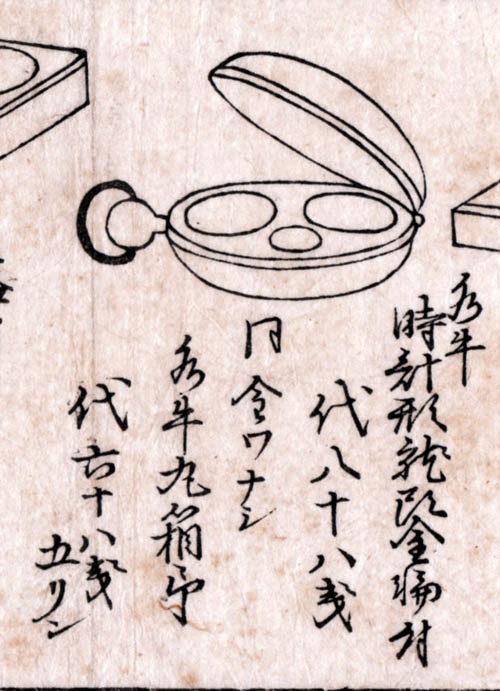 水牛
時計形龍頭金輪付
代八十八戔
同 金ワナシ
水牛丸箱印
代六十八戔
五リン